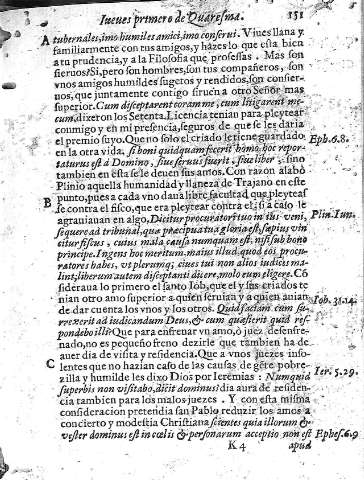 Iueves primero de Quaresma. 151
A tubernales, imo humiles amici, imo conserui. Viues llana y
familiarmente con tus amigos, y hazes lo que està bien
a tu prudencia, y a la Filosofia que professas. Mas son
sieruos? Si, pero son hombres, son tus compañeros, son
vnos amigos humildes sugetos y rendidos, son consier-
uos, que juntamente contigo siruen a otro Señor mas
superior. Cum disceptarent coram me, cum litigarent me-
cum, dixeron los Setenta. Licencia tenian para pleytear
conmigo y en mi presencia, seguros de que se les daria
el premio suyo. Que no solo el criado le tiene guardado
en la otra vida, si boni quidquam fecerit homo, hoc repor- Eph. 6. 8.
taturus est à Domino, siue seruus fuerit, siue liber; sino
tambien en esta se le deuen sus amos. Con razon alabò
Plinio aquella humanidad y llaneza de Trajano en este
B punto, pues a cada vno daua libre facultad que pleyteas
se contra el fisco, que era pleytear contra el si a caso le
agrauiauan en algo, Dicitur procuratori tuo in ius veni, Plin. Iun.
sequere ad tribunal, quæ præcipua tua gloria est, sæpius vin
citur fiscus, cuius mala causa nunquam est, nisi sub bono
principe. Ingens hoc meritum, maius illud, quod eos procu-
ratores habes, vt plerumq; ciues tui non alios iudices ma-
lint, liberum autem disceptanti dicere, nolo eum eligere. Cõ
sideraua lo primero el santo Iob, que el y sus criados te
nian otro amo superior a quien seruian y a quien auian Iob. 31. 14.
de dar cuenta los vnos y los otros. Quid faciam cum su-
rrexerit ad iudicandum Deus, & cum quæsierit quid res-
pondebo illi? Que para enfrenar vn amo, ò juez desenfre-
nado, no es pequeño freno dezirle que tambien ha de
auer dia de visita y residencia. Que a vnos juezes inso-
C lentes que no hazian caso de las causas de gẽte pobre-
zilla y humilde les dixo Dios por Ieremias: Nunquid Ier. 5. 29.
superbis non visitabo, dicit dominus? dia aurà de residẽ-
cia tambien para los malos juezes. Y con esta misma
consideracion pretendia san Pablo reduzir los amos a
concierto y modestia Christiana scientes quia illorum &
vester dominus est in cœlis & personarum acceptio non est Ephes. 6. 9
K 4 apud